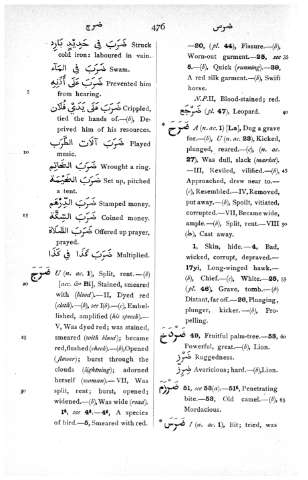 ضرج
476
ضرس
ضَرَبَ فِي حَدِيدٍ بَارِدٍ Struck
cold iron: laboured in vain.
ضَرَبَ فِي المَآء Swam.
ضَرَبَ عَلَى أُذُنِهِ Prevented him
from hearing.
ضَرَبَ عَلَى يَدَيْ فُلَان Crippled,
tied the hands of.—(b), De-
prived him of his resources.
ضَرَبَ آلَات الطَّرَب Played
music.
ضَرَبَ Wrought a ring.
ضَرَبَ الخَيْمَة Set up, pitched
a tent.
ضَرَبَ الدِّرْهَم Stamped money.
ضَرَبَ السِّكَّة Coined money.
ضَرَبَ الصَّلَاة Offered up prayer,
prayed.
ضَرَبَ كَذَا فِي كَذَا Multiplied.
ضَرَجَ U (n. ac. 1), Split, rent.—(b)
[acc. & Bi], Stained, smeared
with (blood).— II, Dyed red
(cloth).—(b), see I(b).—(c), Embel-
lished, amplified (his speech).—
V, Was dyed red; was stained,
smeared (with blood); became
red, flushed (cheek).—(b), Opened
(flower); burst through the
clouds (lightning); adorned
herself (woman).— VII, Was
split, rent; burst, opened;
widened.—(b), Was wide (road).
1ᵃ, see 4ᵃ.—4ᵃ, A species
of bird.—5, Smeared with red.
—20, (pl. 44), Fissure.—(b),
Worn-out garment.—25, see
5.—(b), Quick (running).—39,
A red silk garment.—(b), Swift
horse.
N.P.II, Blood-stained; red.
(pl. 47), Leopard.
ضَرَحَ A (n. ac. 1) [La], Dug a grave
for.—(b), U (n. ac. 23), Kicked,
plunged, reared.—(c), (n. ac.
27), Was dull, slack (market).
—III, Reviled, vilified.—(b),
Approached, drew near to.—
(c), Resembled.—IV, Removed,
put away.—(b), Spoilt, vitiated,
corrupted.—VII, Became wide,
ample.—(b), Split, rent.—VIII
(in), Cast away.
1, Skin, hide.—4, Bad,
wicked, corrupt, depraved.—
17yi, Long-winged hawk.—
(b), Chief.—(c), White.—25,
(pl. 46), Grave, tomb.—(b)
Distant, far off.—26, Plunging,
plunger, kicker.—(b), Pro-
pelling.
49, Fruitful palm-tree.—53,
Powerful, great.—(b), Lion.
Ruggedness.
Avaricious; hard.—(b), Lion.
51, see 53(a).—51ᵃ, Penetrating
bite.—53, Old camel.—(b),
Mordacious.
ضَرَسَ I (n. ac. 1), Bit; tried, was